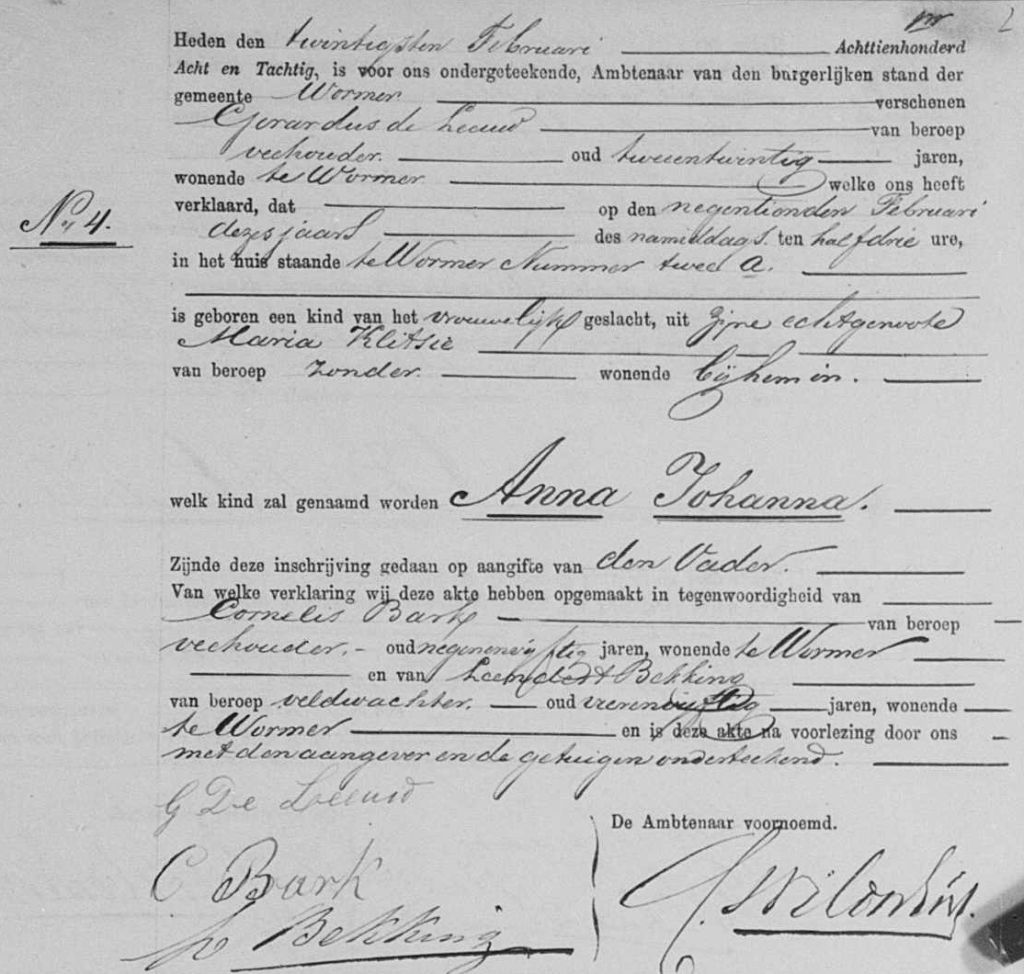 2
Heden den twintigsten Februari Achttienhonderd
Acht en Tachtig, is voor ons ondergeteekende, Ambtenaar van den burgerlijken stand der
gemeente Wormer verschenen
Gerardus de Leeuw van beroep
veehouder. oud tweeentwintig jaren,
wonende te Wormer welke ons heeft
No. 4.
verklaard, dat op den negentienden Februari
dezes jaars des namiddags ten half drie ure,
in het huis staande te Wormer Nummer twee a.
is geboren een kind van het vrouwelijk geslacht, uit zijne echtgenoote
Maria Klitsie
van beroep zonder. wonende bij hem in.
welk kind zal genaamd worden Anna Johanna.
Zijnde deze inschrijving gedaan op aangifte van den Vader.
Van welke verklaring wij deze akte hebben opgemaakt in tegenwoordigheid van
Cornelis Bark van beroep
veehouder. oud negenenvijftig jaren, wonende te Wormer
en van Leendert Bekking
van beroep veldwachter. oud vierenvijftig jaren, wonende
te Wormer en is deze akte na voorlezing door ons
met den aangever en de getuigen onderteekend.
G De Leeuw
De Ambtenaar voornoemd.
C Bark
Bekking